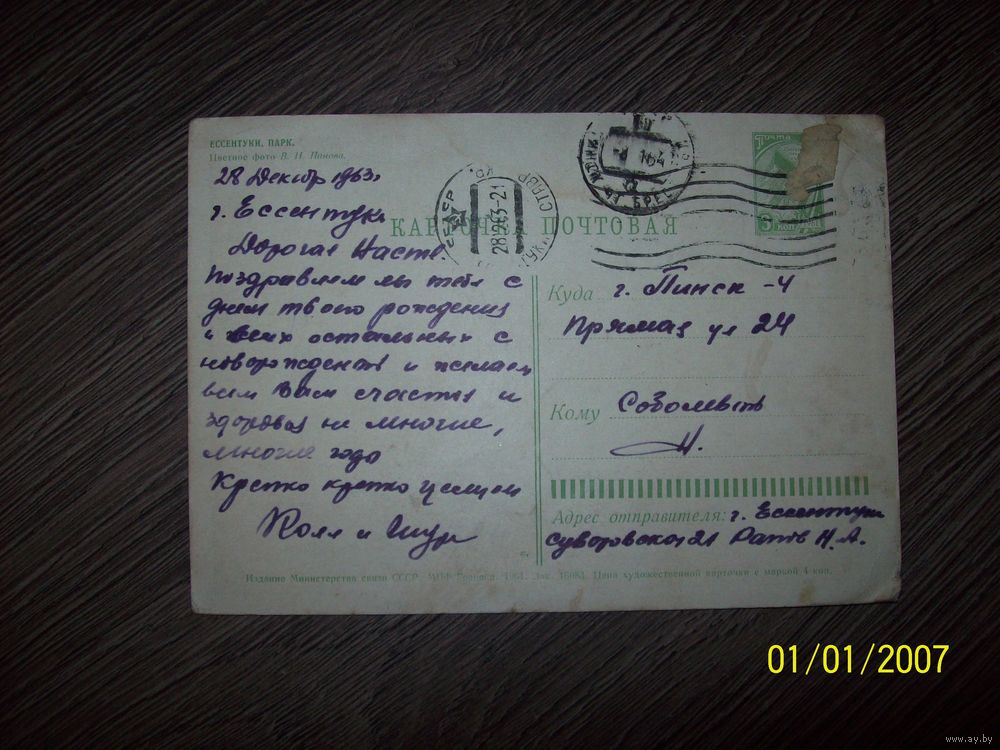 ЕССЕНТУКИ. ПАРК.
Цветное фото В. Н. Панова.
28 Декабр 1963г
г. Ессентуки
КАРТОЧКА ПОЧТОВАЯ
Дорогая Настя
Поздравляем мы тебя с
днем твоего рождения
и всех остальных с
новорожденой и желаем
всем Вам счастья и
здоровья на многие,
многие года
Крепко крепко целуем
Коля и Шура
ПОЧТА
3 коп
СССР
28 12 63-21
СТАВР
БРЕС
Куда г. Пинск-4
Прямая ул 24
Кому
Н.
Адрес отправителя: г. Ессентуки
Суворовская 21 Н. А.
Издание Министерства связи СССР. Цена художественной карточки с маркой 4 коп.
01/01/2007
www.ay.by